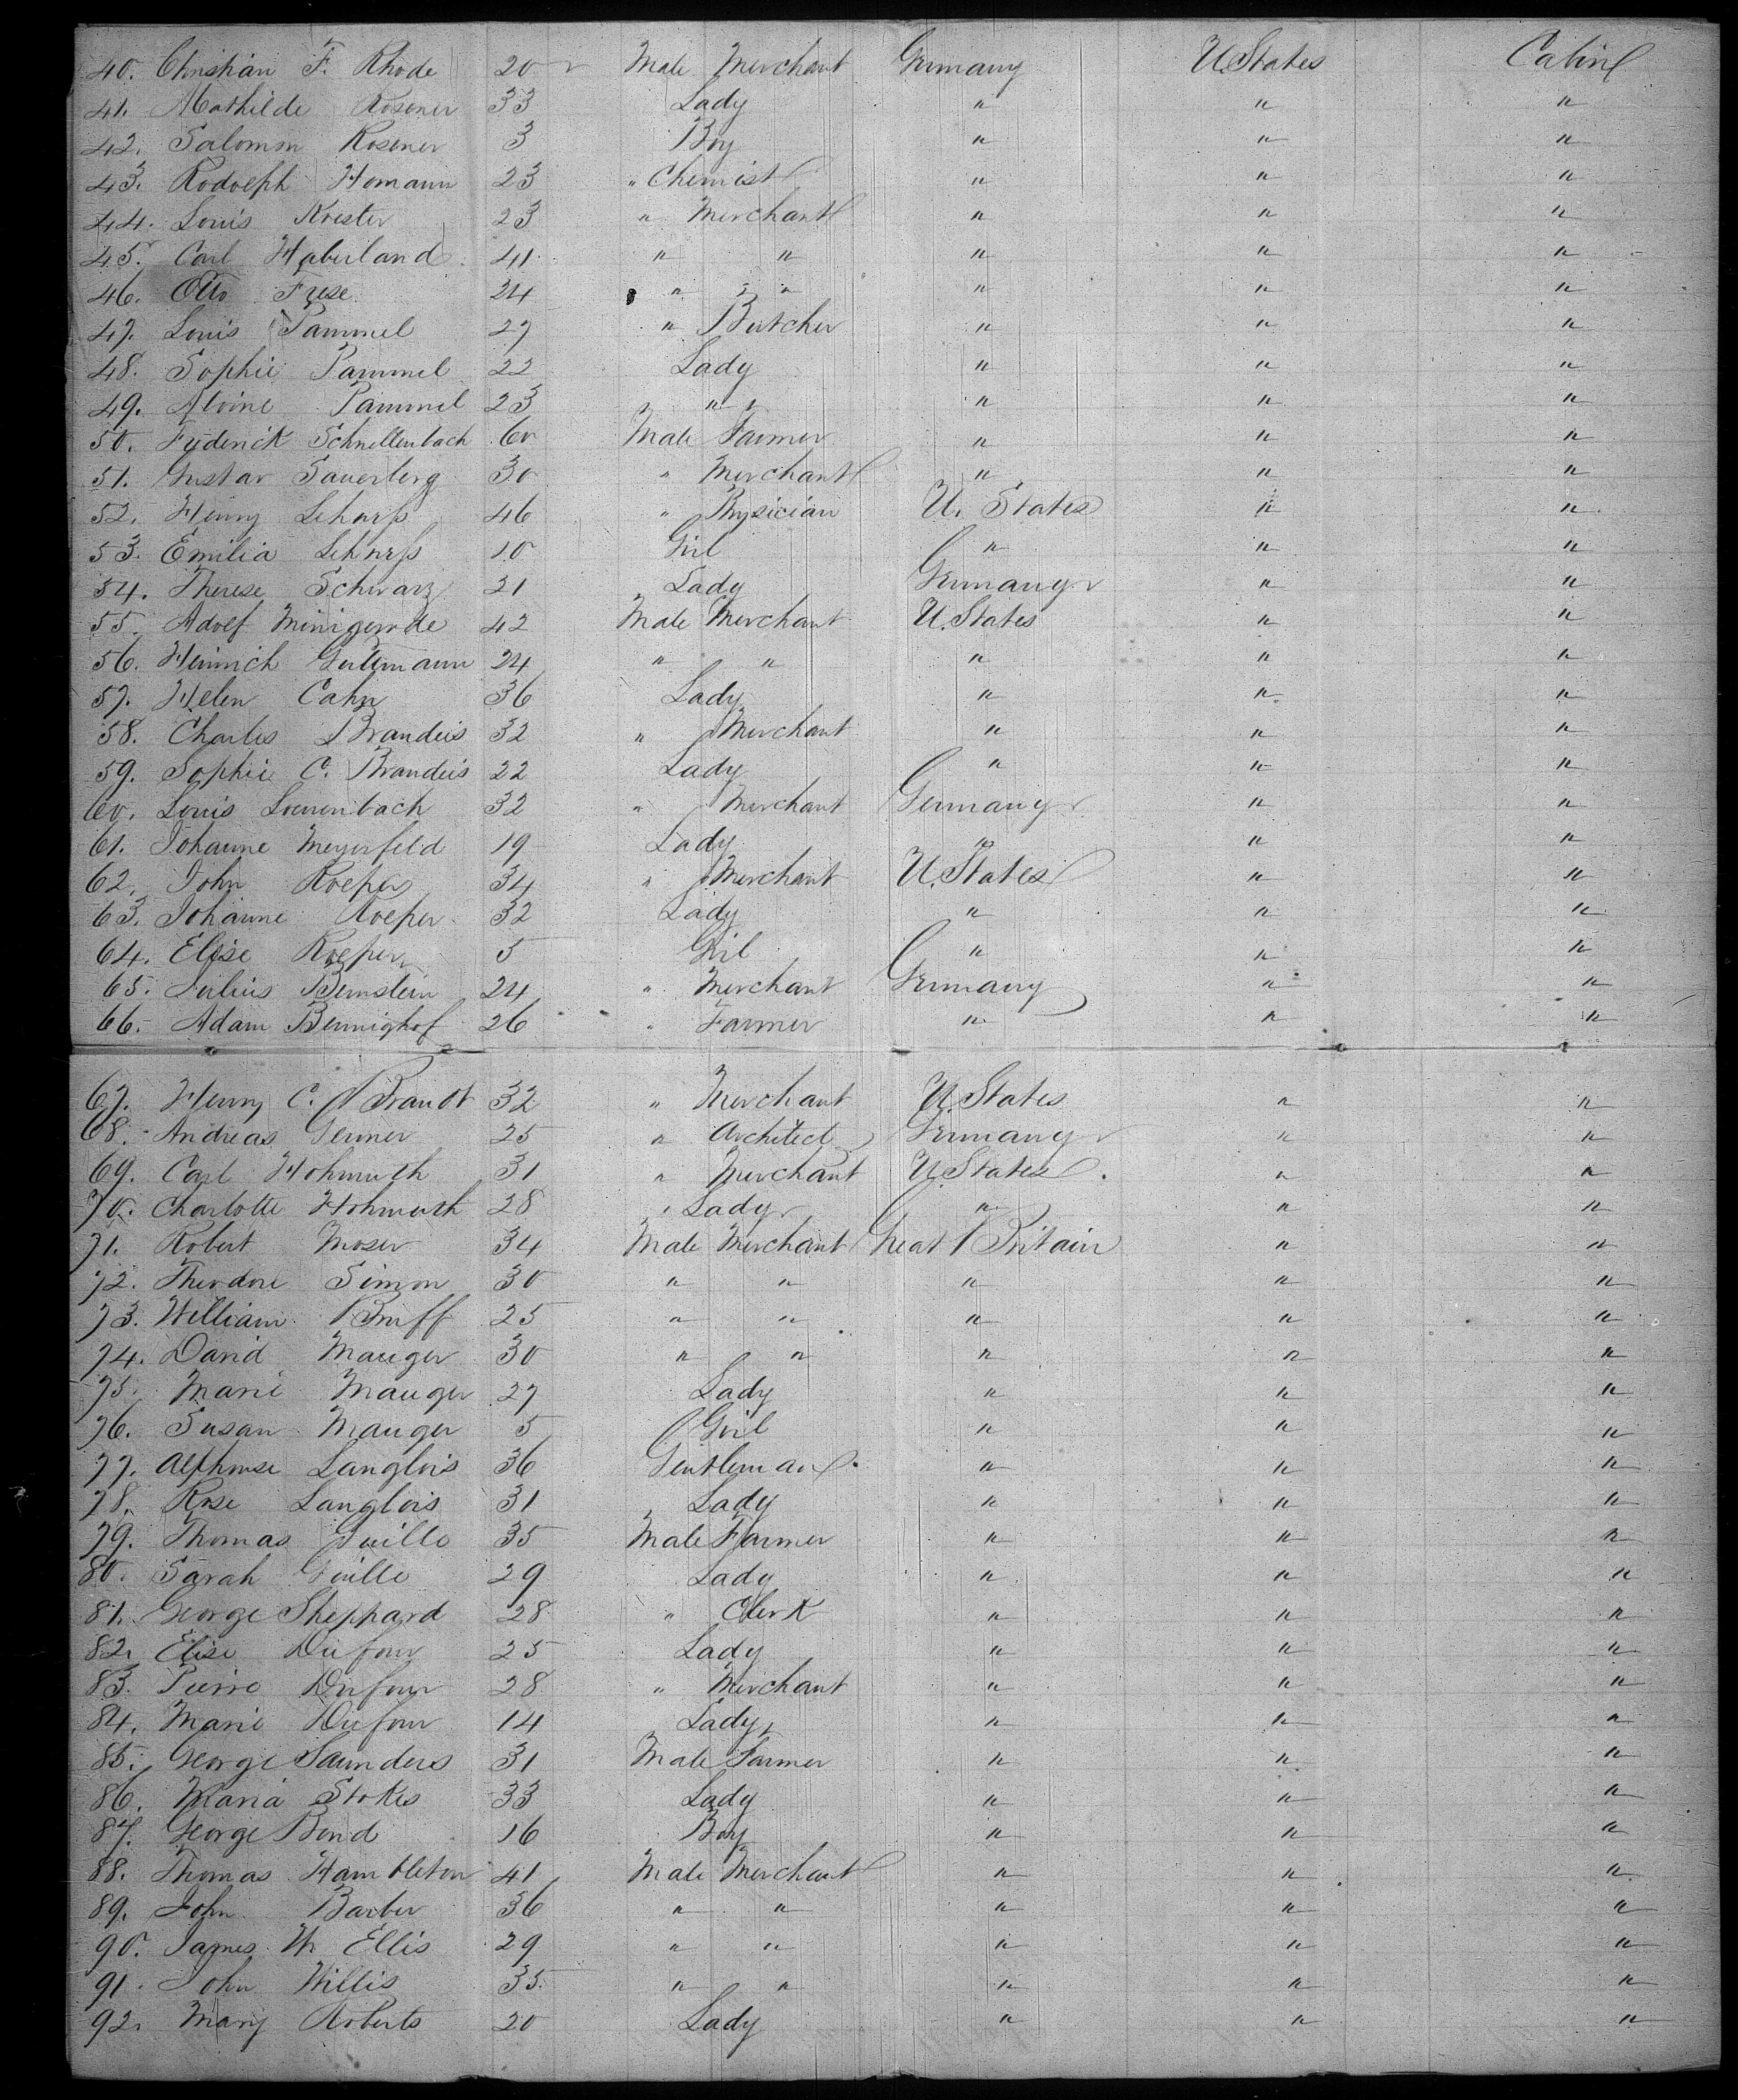 40. Christian F. Rhode 20 Male Merchant Germany U.States Cabin
41. Mathilde Rosener 33 Lady " " "
42. Salomon Rosener 3 Boy " " "
43. Rodolph Homann 23 " Chemist " " "
44. Louis Krester 23 " Merchant " " "
45. Carl Haberland 41 " " " " "
46. Otto Frese 24 " " " " "
47. Louis Pammel 27 " Butcher " " "
48. Sophie Pammel 22 Lady " " "
49. Alvine Pammel 23 " " " "
50. Fyderick Schnellenbach 60 Male Farmer " " "
51. Gustav Sauerberg 30 " Merchant " " "
52. Henry 46 " Physician U. States " "
53. Emilia 10 Girl " " "
54. Therese Schwarz 21 Lady Germany " "
55. Adolf Minigerode 42 Male Merchant U.States " "
56. Heinrich 24 " " " " "
57. Helen Cahn 36 Lady " " "
58. Charles Brandeis 32 " Merchant " " "
59. Sophie C. Brandeis 22 Lady " " "
60. Louis Loewenbach 32 " Merchant Germany " "
61. Johanne Meyerfeld 19 Lady " " "
62. John Roeper 34 " Merchant U.States " "
63. Johanne Roeper 32 Lady " " "
64. Elise Roeper 5 Girl " " "
65. Julius Bernstein 24 " Merchant Germany " "
66. Adam Bennighof 26 " Farmer " " "
67. Henry C. Brandt 32 " Merchant U.States " "
68. Andreas Genner 25 " Architect Germany " "
69. Carl Hohmuth 31 " Merchant U.States " "
70. Charlotte Hohmuth 28 " Lady " " "
71. Robert Moser 34 Male Merchant Great Britain " "
72. Theodore Simon 30 " " " " "
73. William Bruff 25 " " " " "
74. David Mauger 30 " " " " "
75. Marie Mauger 27 Lady " " "
76. Susan Mauger 5 Girl " " "
77. Alphonse Langlois 36 Gentleman " " "
78. Rose Langlois 31 Lady " " "
79. Thomas Guille 35 Male Farmer " " "
80. Sarah Guille 29 Lady " " "
81. George Sheppard 28 " Clerk " " "
82. Elise Dufour 25 Lady " " "
83. Pierre Dufour 28 " Merchant " " "
84. Marie Dufour 14 Lady " " "
85. George Saunders 31 Male Farmer " " "
86. Maria Stokes 33 Lady " " "
87. George Bond 16 Boy " " "
88. Thomas Hambleton 41 Male Merchant " " "
89. John Barber 36 " " " " "
90. James W Ellis 29 " " " " "
91. John Willis 35 " " " " "
92. Mary Roberts 20 Lady " " "